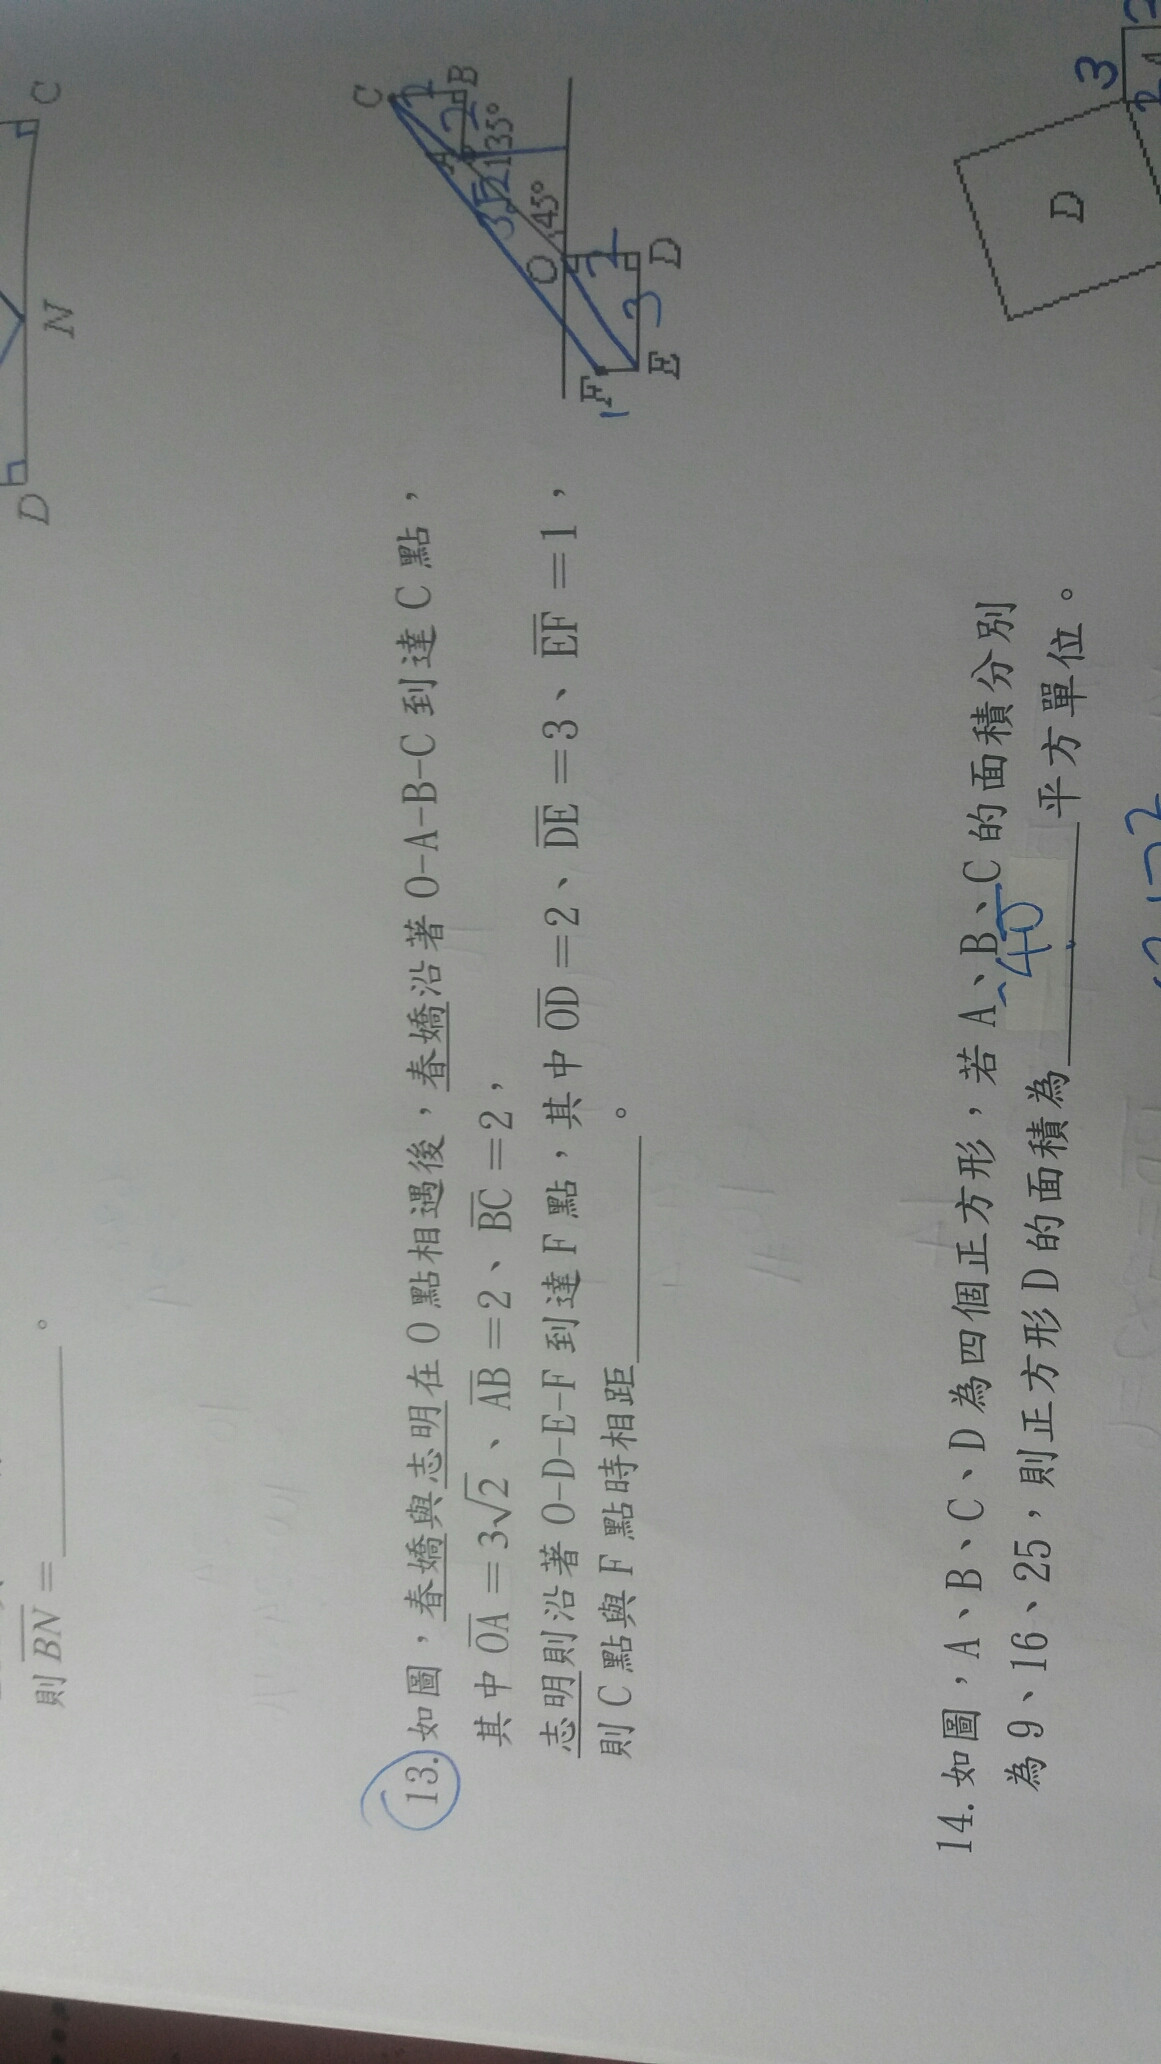 D
N
C
則 BN = ______。
13. 如圖，春嬌與志明在 O 點相遇後，春嬌沿著 O-A-B-C 到達 C 點，
其中 OA = 3√2、AB = 2、BC = 2，
志明則沿著 O-D-E-F 到達 F 點，其中 OD = 2、DE = 3、EF = 1，
則 C 點與 F 點時相距______。
C
2
A
2
B
3√2
135°
O
45°
F
1
2
3
E
D
14. 如圖，A、B、C、D 為四個正方形，若 A、B、C 的面積分別
為 9、16、25，則正方形 D 的面積為______平方單位。
40
D
3